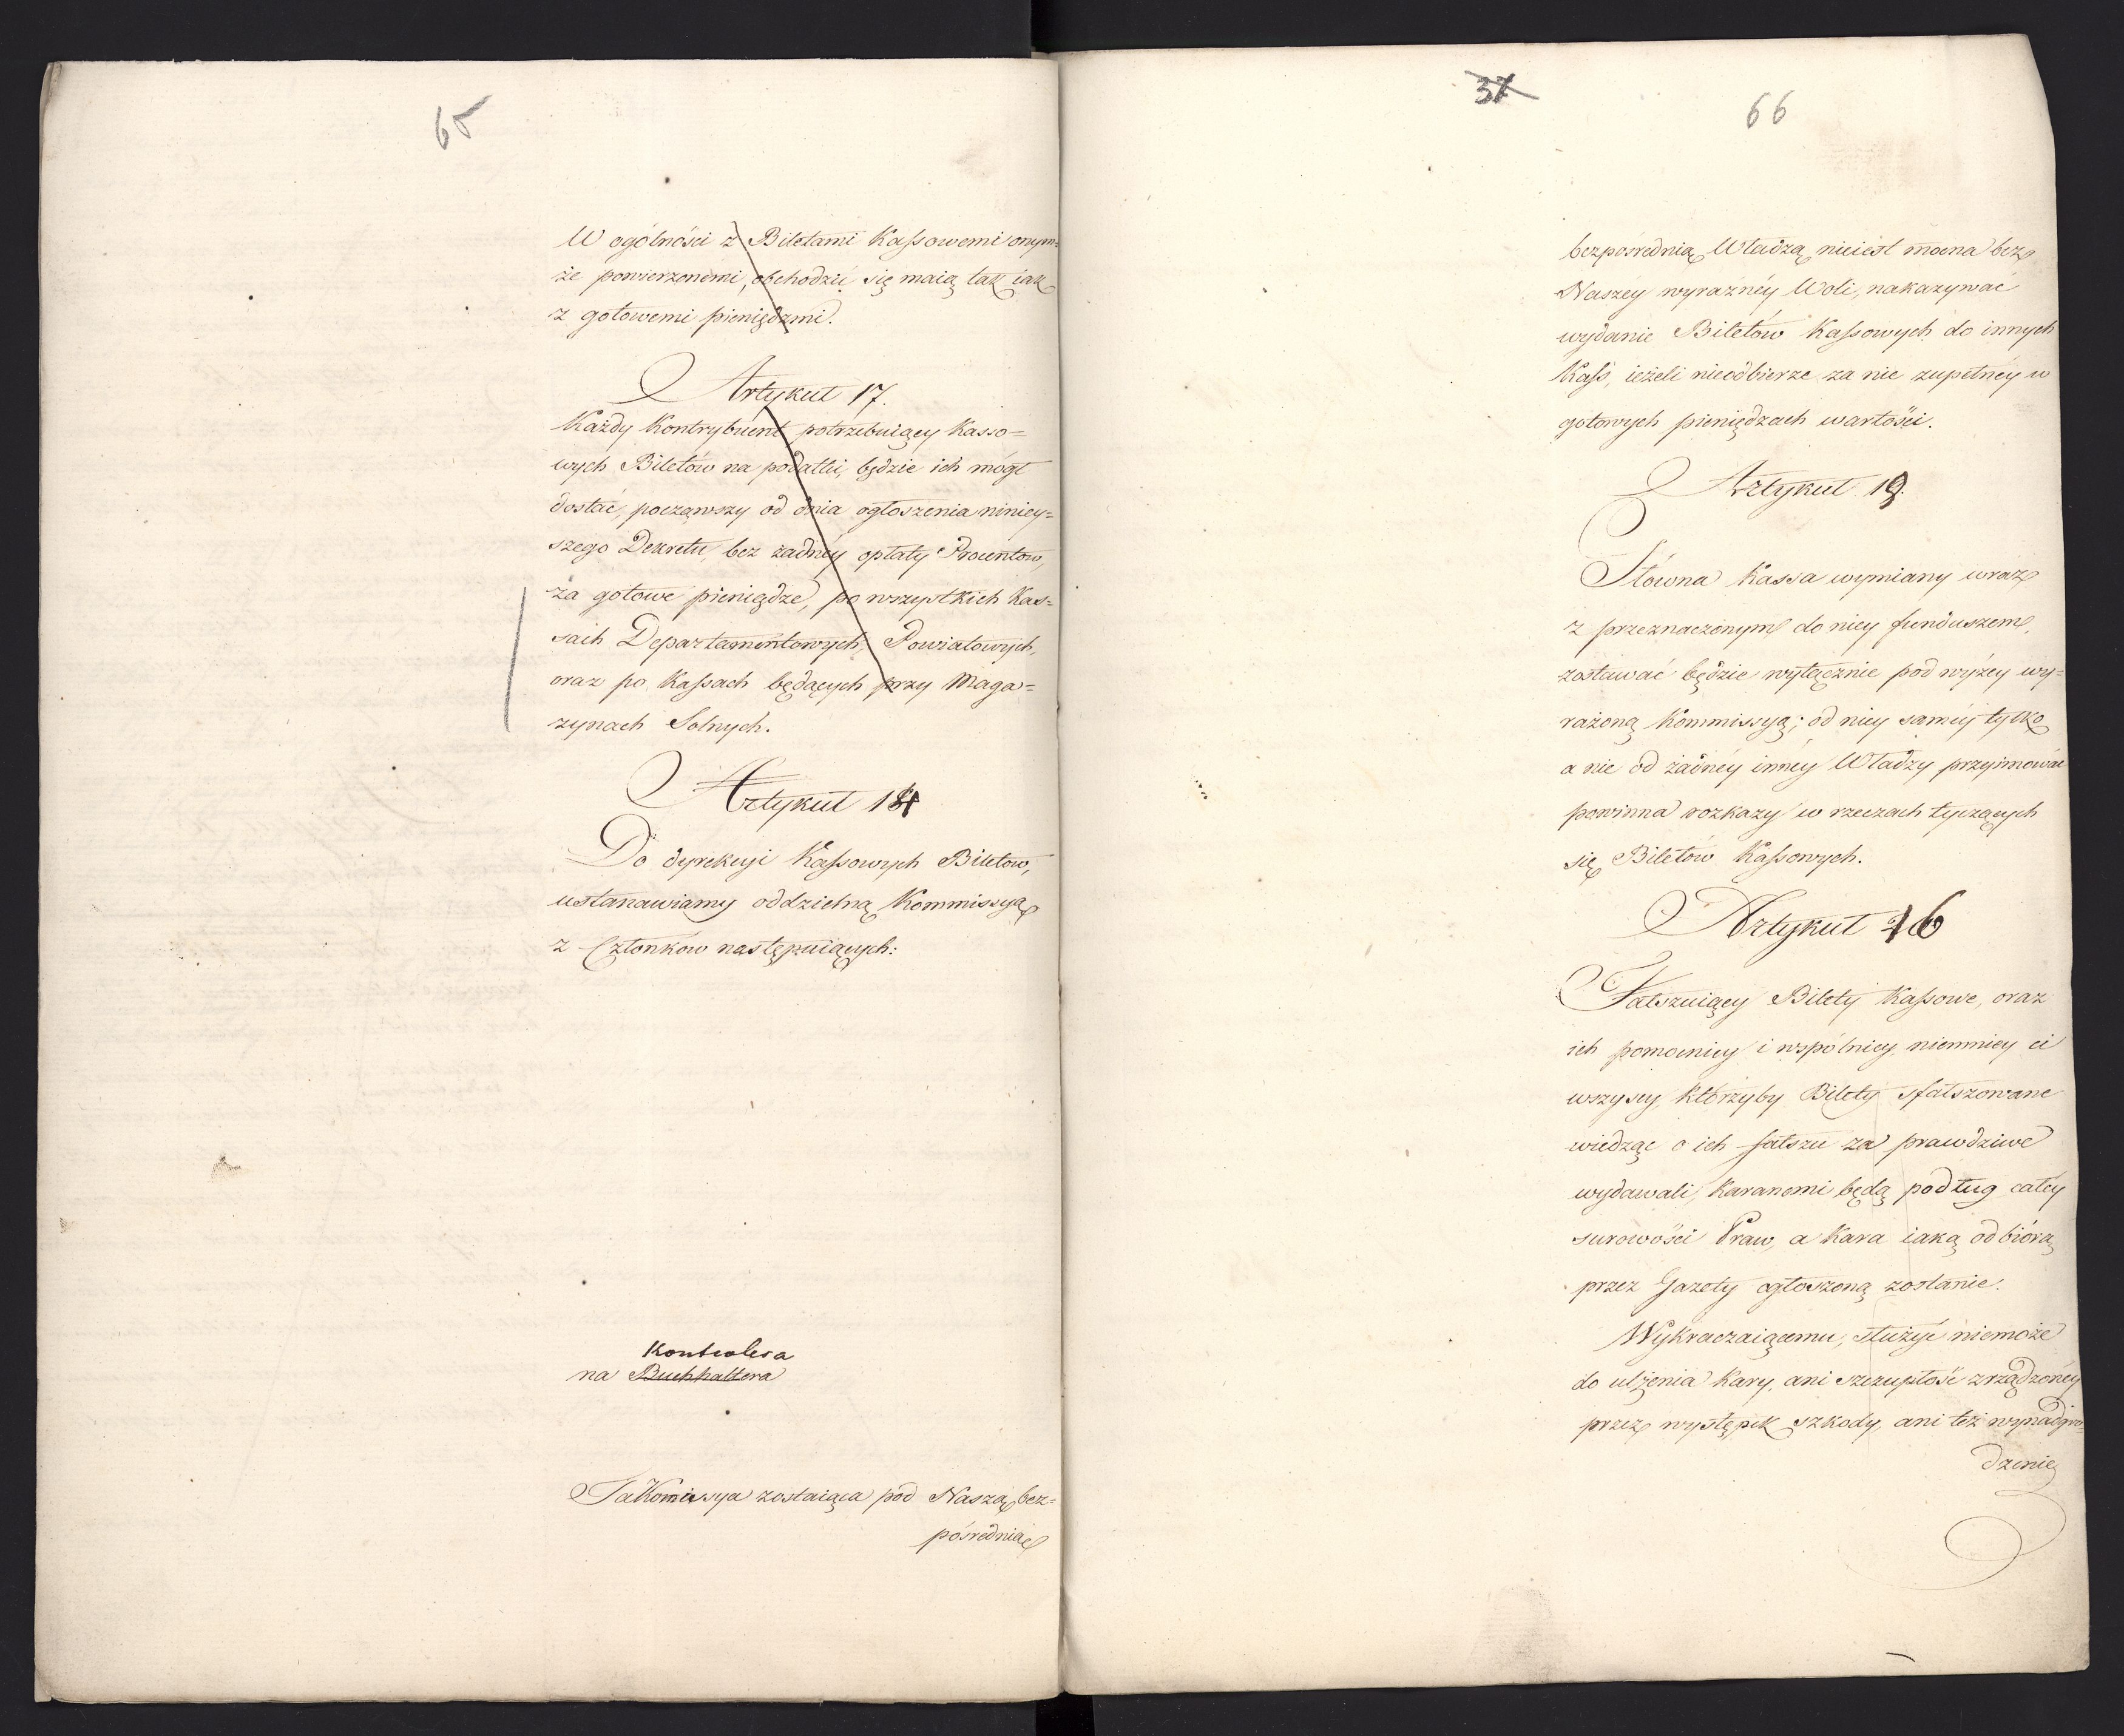 65
W ogólności z Biletami Kassowemi onym=
że powierzonemi, obchodzić się maią tak iak
z gotowemi pieniędzmi.
Artykuł 17.
Każdy Kontrybuent potrzebuiący Kasso=
wych Biletów na podatki, będzie ich mógł
dostać, począwszy od dnia ogłoszenia niniey=
szego Dekretu, bez żadnéy opłaty Procentow,
za gotowe pieniędze, po wszystkich Kas=
sach Departamentowych, Powiatowych,
oraz po Kassach będących przy Maga=
zynach Solnych.
Artykuł
Do dyrekcyi Kassowych Biletow,
ustanawiamy oddzielną Kommissyą
z Członkow następuiących:
Kontrolera
na Buchhaltera
Ta Komissya zostaiąca pod Naszą bez=
pośrednią
37
66
bezpośrednią Władzą, nieiest mocna bez
Naszéy wyraznéy Woli, nakazywać
wydanie Biletów Kassowych do innych
Kass, ieżeli nieodbierze za nie zupełnéy w
gotowych pieniędzach wartości.
Artykuł 19.
Główna Kassa wymiany wraz
z przeznaczonym do niey funduszem,
zostawać będzie wyłącznie pod wyżey wy=
rażoną Kommissyą; od niey saméy tylko
a nie od żadnéy innéy Władzy przyimować
powinna rozkazy w rzeczach tyczących
się Biletów Kassowych.
Artykuł 16
Fałszuiący Bilety Kassowe, oraz
ich pomocnicy i wspólnicy, niemniey ci
wszyscy, którzyby Bilety sfałszowane
wiedząc o ich fałszu za prawdziwe
wydawali, karanemi będą podług całey
surowości Praw, a kara iaką odbiorą
przez Gazety ogłoszoną zostanie.
Wykraczaiącemu, służyć niemoże
do ulżenia kary, ani szczupłość zrządzonéy
przez występek szkody, ani też wynadgro=
dzenie